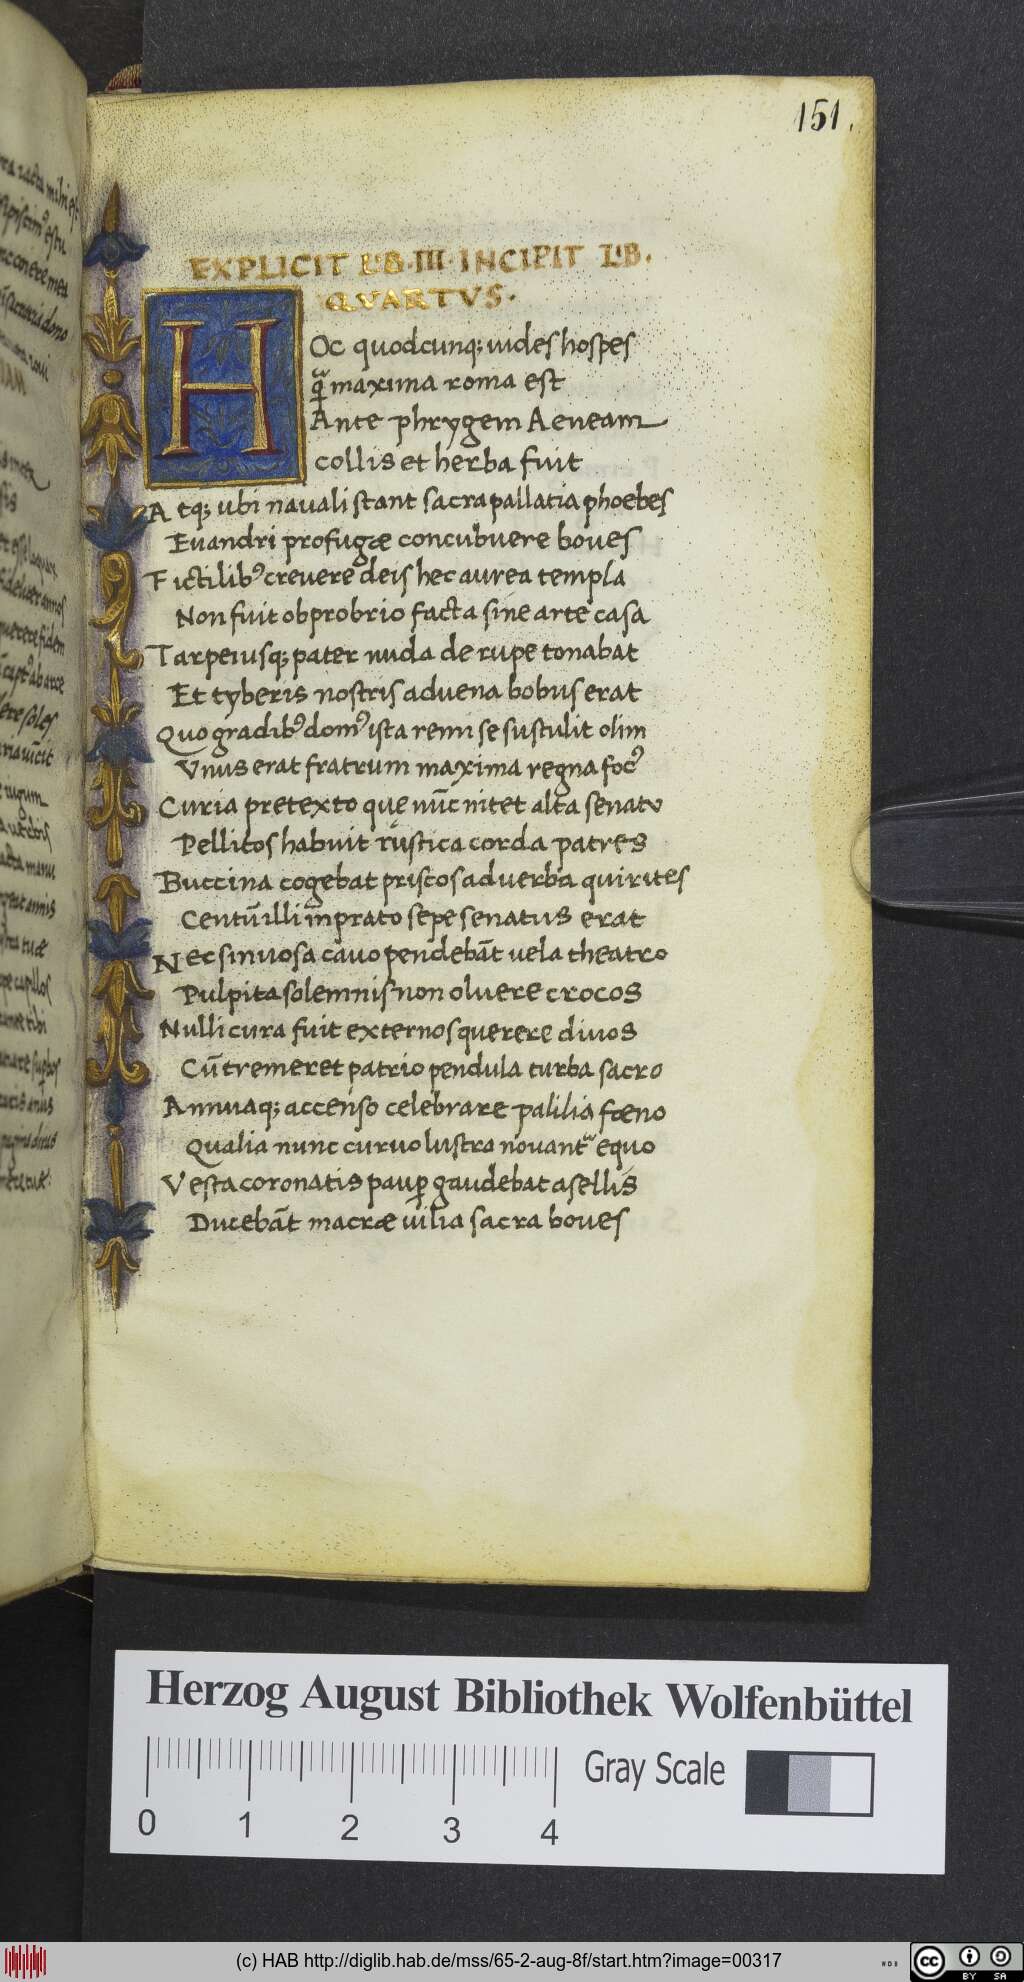 151.
EXPLICIT LIB. III. INCIPIT LIB.
QVARTVS.
HOc quodcunq; uides hospes
q̃ maxima roma est
Ante phrygem Aeneam
collis et herba fuit
Atq; ubi nauali stant sacra pallatia phoebes
Euandri profugæ concubuere boues
Fictilibꝰ creuere deis hec aurea templa
Non fuit obprobrio facta sine arte casa
Tarpeiusq; pater nuda de rupe tonabat
Et tyberis nostris aduena bobus erat
Quo gradibꝰ domꝰ ista remi se sustulit olim
Vnus erat fratrum maxima regna focꝰ
Curia pretexto que nũc nitet alta senatu
Pellitos habuit rustica corda patres
Buccina cogebat priscos ad uerba quirites
Centũ illi in prato sepe senatus erat
Nec sinuosa cauo pendebãt uela theatro
Pulpita solemnis non oluere crocos
Nulli cura fuit externos querere diuos
Cũ tremeret patrio pendula turba sacro
Annuaq; accenso celebrare palilia fœno
Qualia nunc curuo lustra nouantᷓ equo
Vesta coronatis paup̱ gaudebat asellis
Ducebãt macræ uilia sacra boues
Herzog August Bibliothek Wolfenbüttel
Gray Scale
0 1 2 3 4
(c) HAB http://diglib.hab.de/mss/65-2-aug-8f/start.htm?image=00317
WDB
cc BY SA